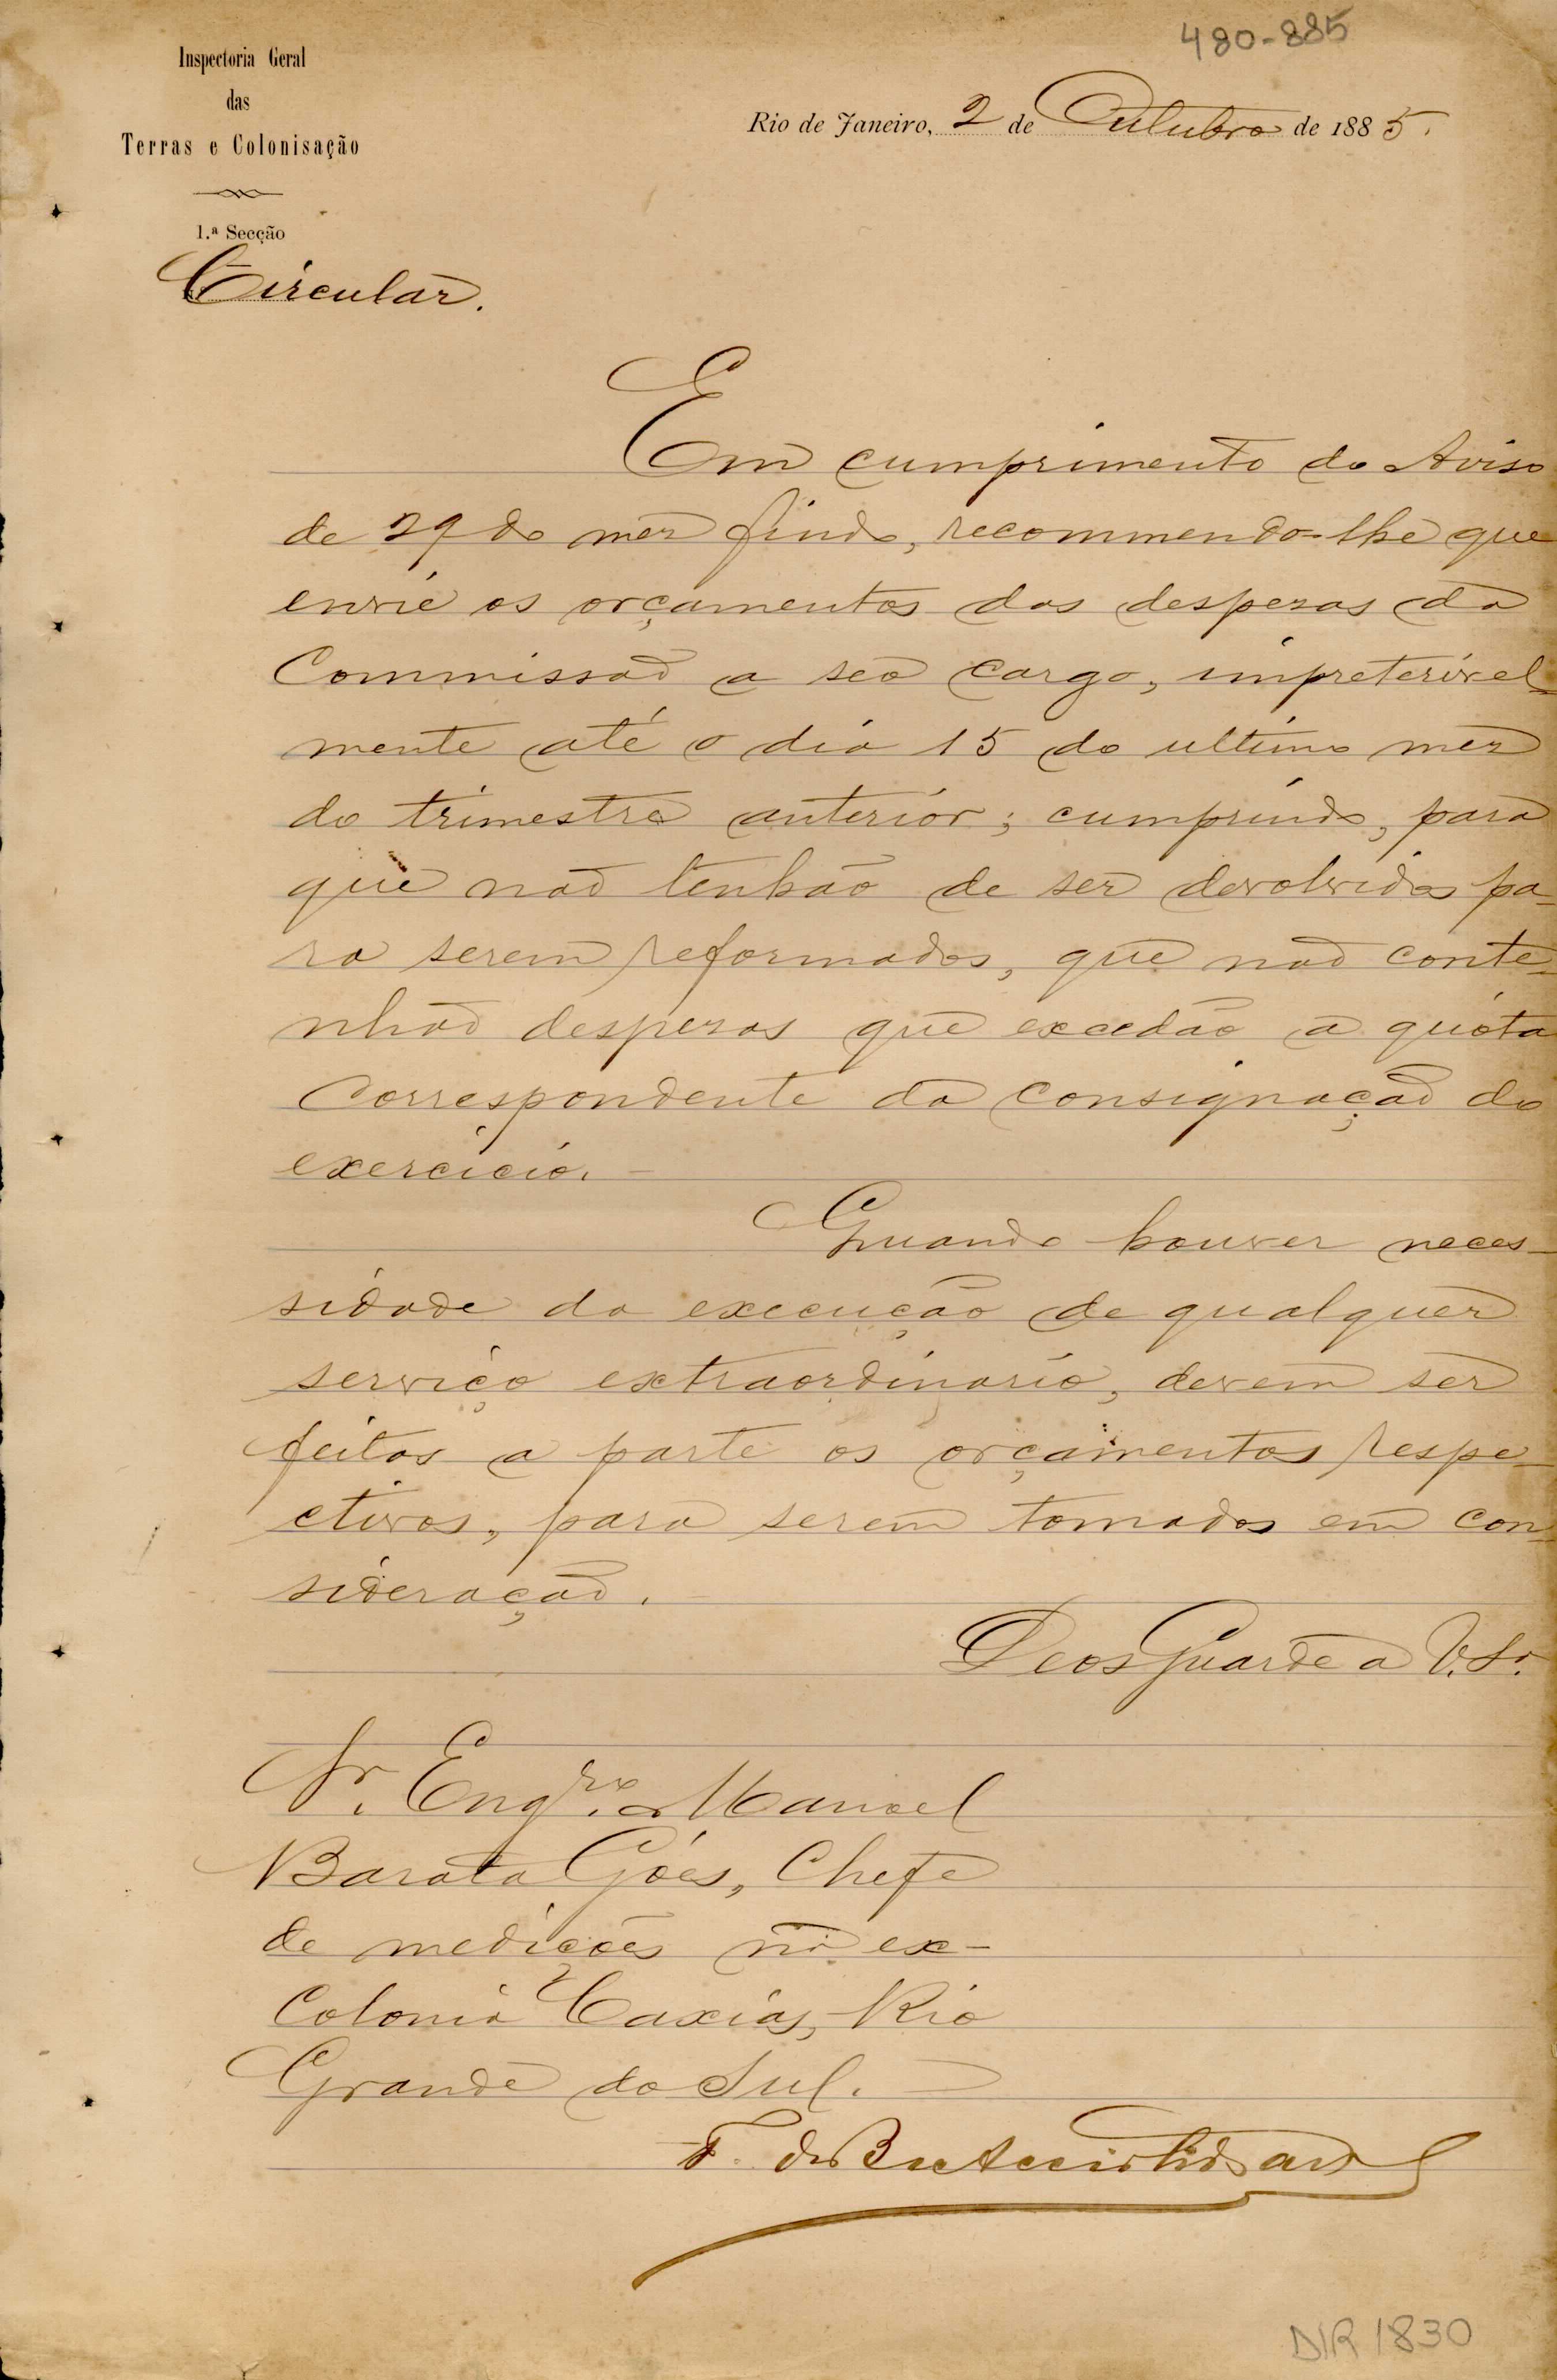 480-885
Inspectoria Geral
das
Terras e Colonisação
1.ª Secção
Circular.
Rio de Janeiro, 2 de Outubro de 1885.
Em cumprimento do Aviso
de 29 do mez findo, recommendo-lhe que
envie os orçamentos das despezas da
Commissão a seo cargo, impreterivel-
mente até o dia 15 do ultimo mez
do trimestre anterior; cumprindo, para
que não tenhão de ser devolvidos pa-
ra serem reformados, que não conte-
nhão despezas que excedão a quóta
correspondente da consignação do
exercicio.
Quando houver neces-
sidade da execução de qualquer
serviço extraordinario, devem ser
feitos a parte os orçamentos respe-
ctivos, para serem tomados em con-
sideração.
Deos Guarde a V. Sª.
Sr. Engro. Manoel
Barata Góes, Chefe
de medições na ex-
Colonia Caxias, Rio
Grande do Sul.
F. de B. e Accioli de
DIR 1830